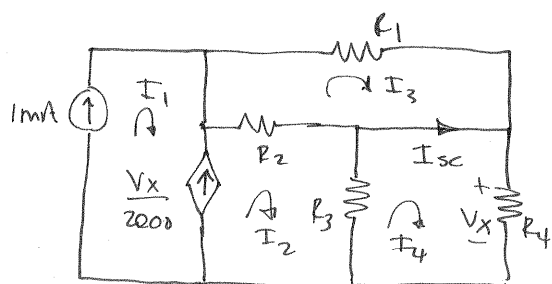 R1
I1
I3
1mA
R2
Isc
Vx
2000
I2
R3
I4
+
Vx
-
R4